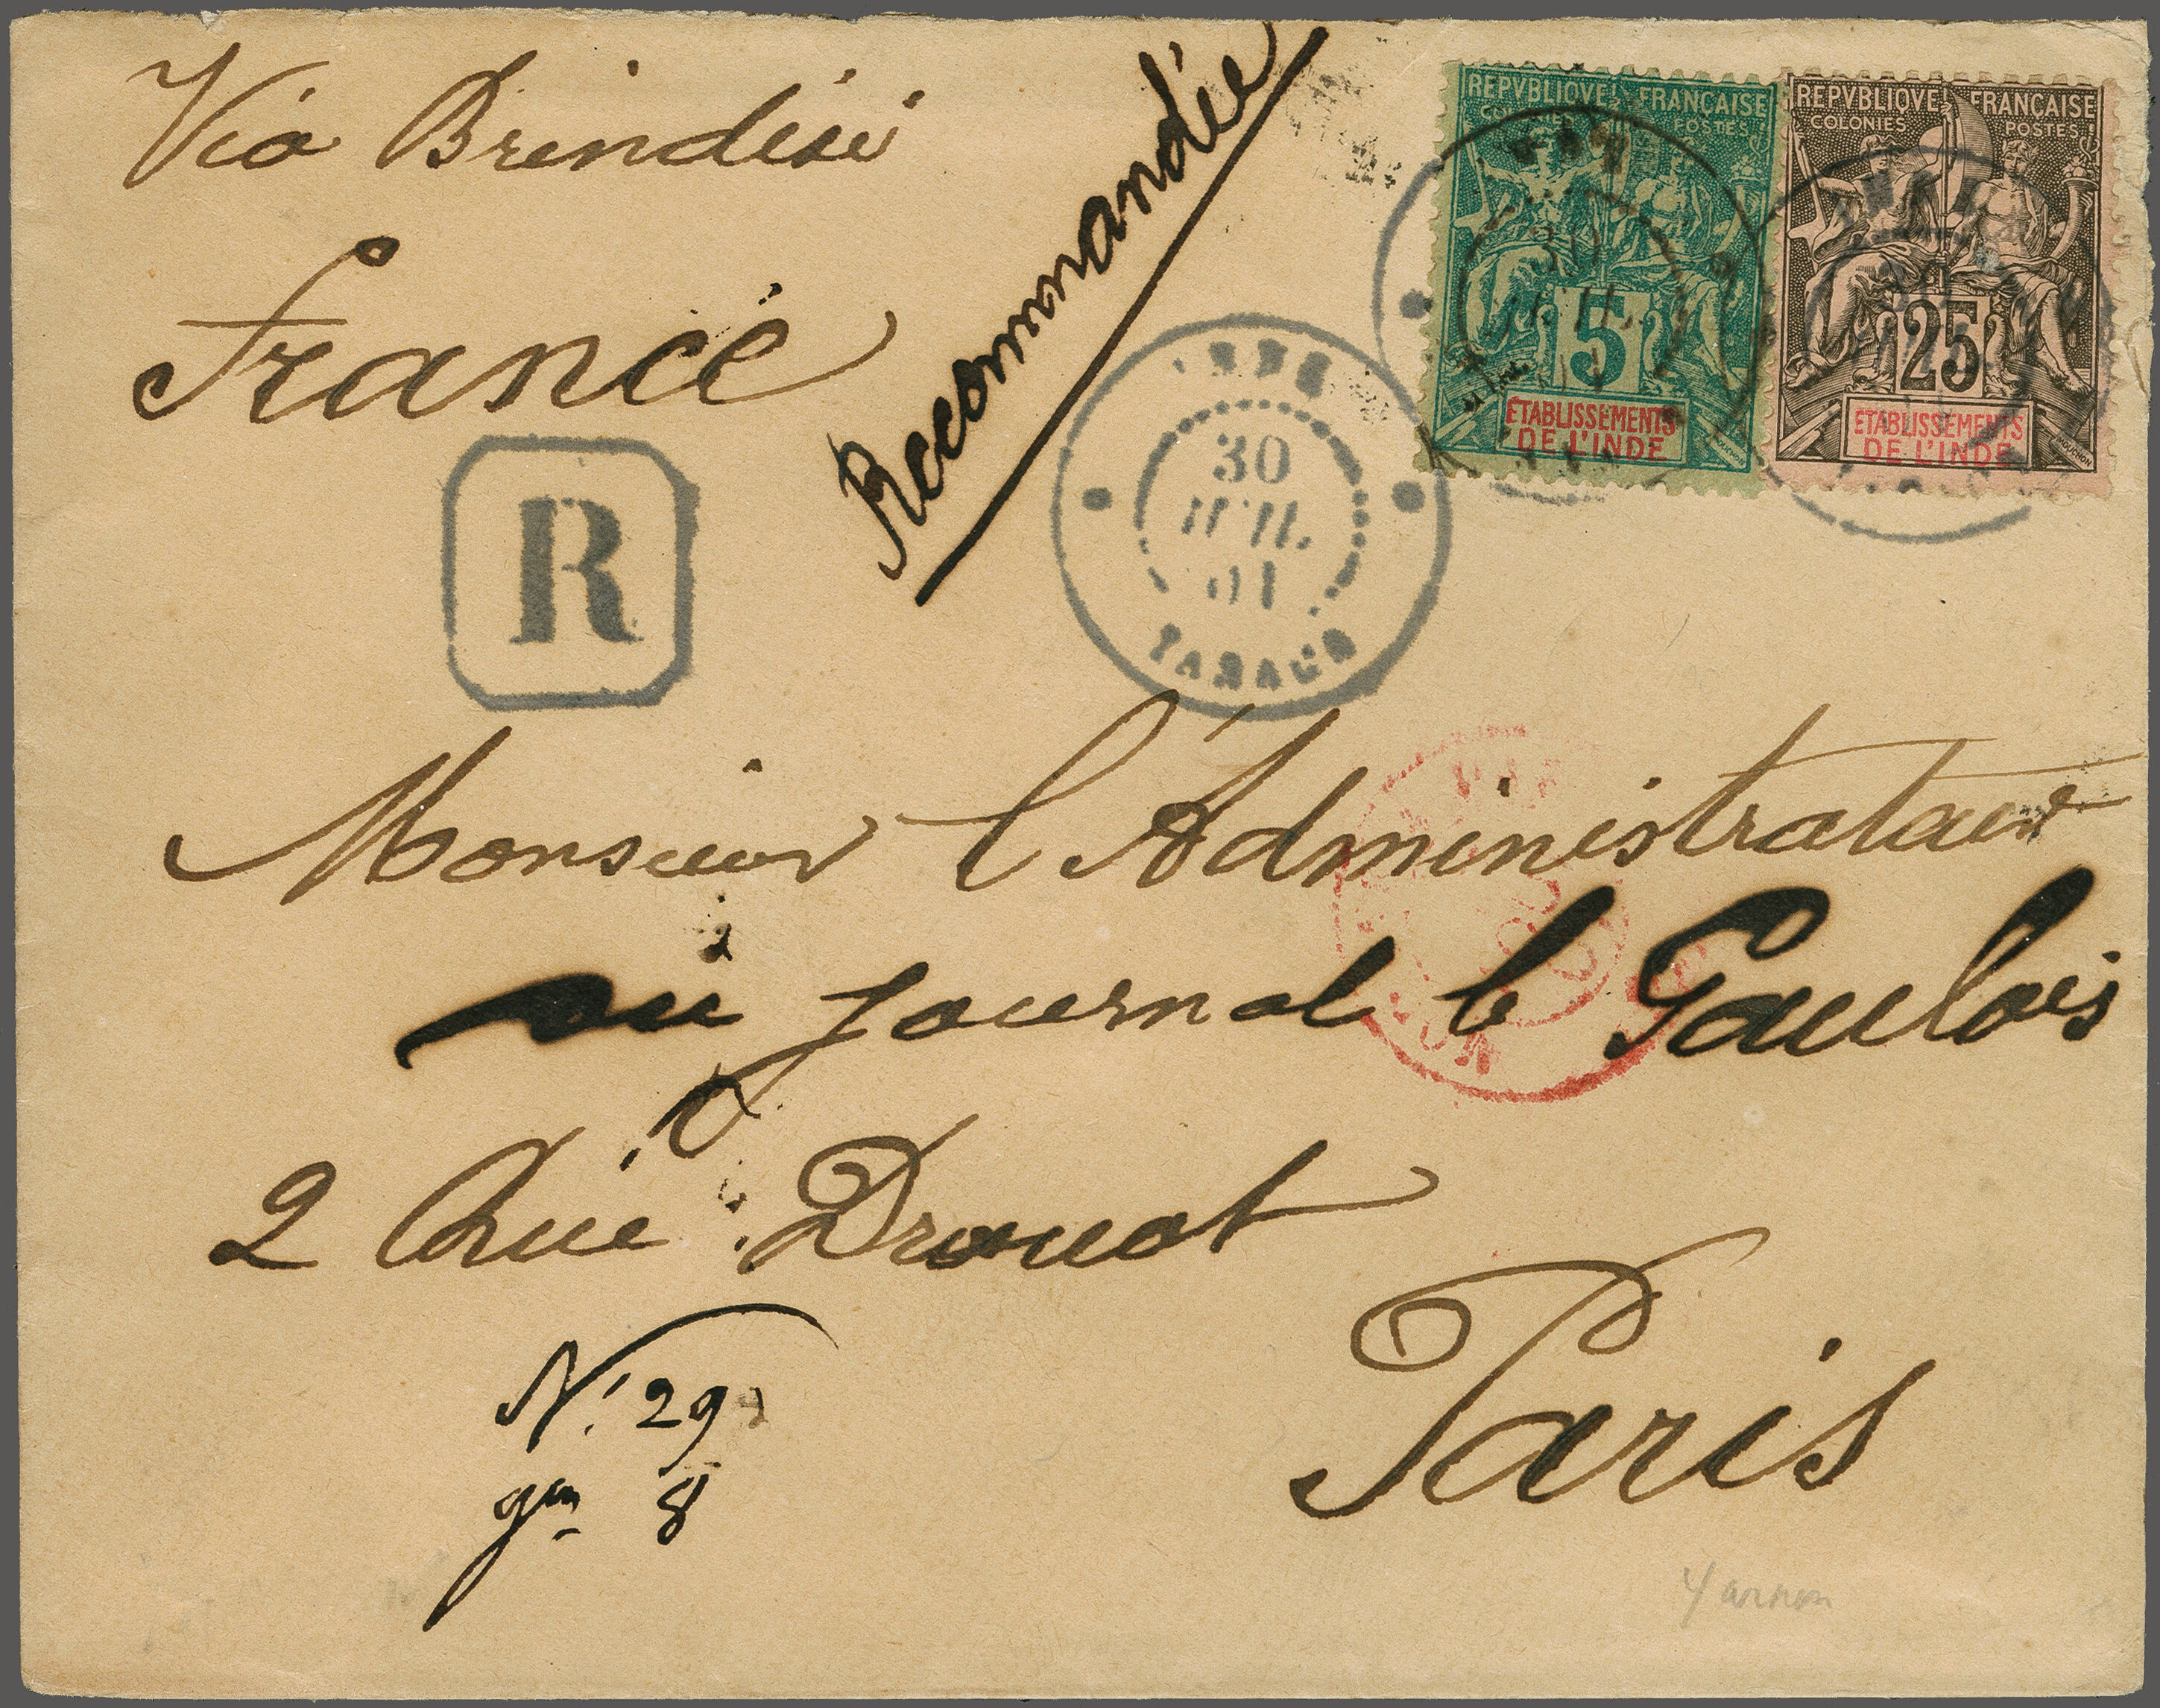 Via Brindisi
France
Recommandée
REPVBLIQVE FRANÇAISE
COLONIES POSTES
5
ETABLISSEMENTS
DE L'INDE
REPVBLIQVE FRANÇAISE
COLONIES POSTES
25
ETABLISSEMENTS
DE L'INDE
MOUCHON
INDE
30
JUIL.
01
YANAON
R
Monsieur l'Administrateur
du journal le Gaulois
2 Rue Drouot
Paris
N. 29
gm 8
Yanaon